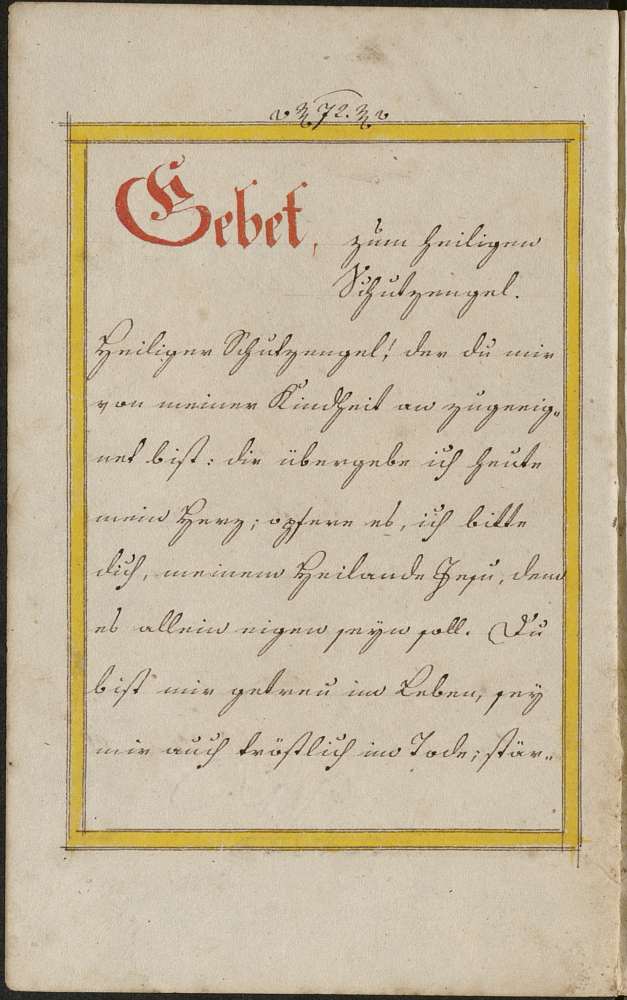 72.
Gebet, zum heiligen
Schutzengel.
Heiliger Schutzengel! der du mir
von meiner Kindheit an zugeeig„
net bist: dir übergebe ich heute
mein Herz; opfere es, ich bitte
dich, meinem Heilande Jesu, dem
es allein eigen seyn soll. Du
bist mir getreu im Leben, sey
mir auch tröstlich im Tode; stär„